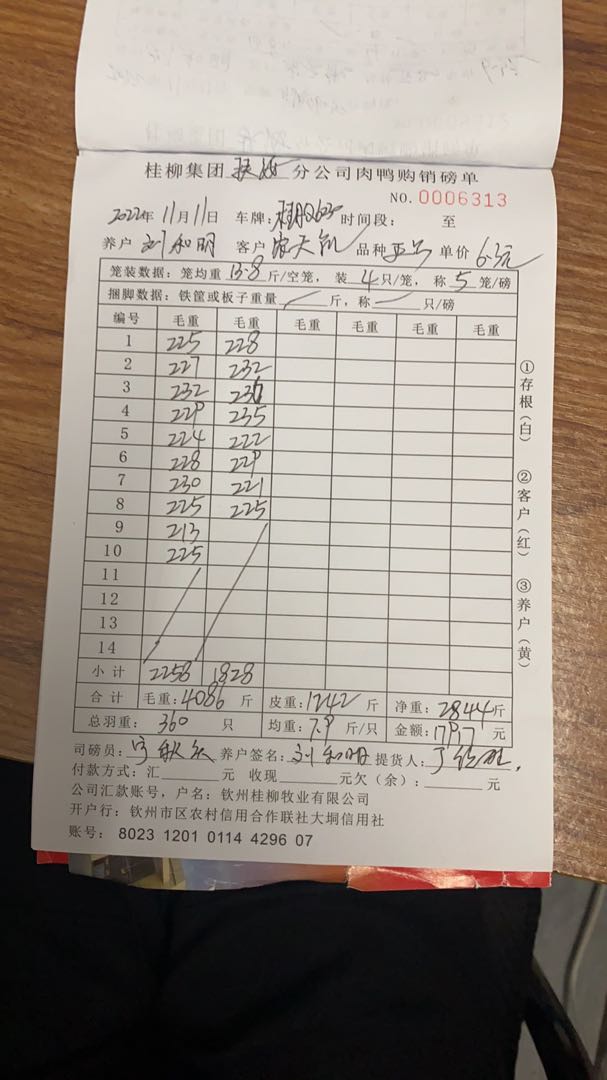 桂柳集团 扶绥 分公司肉鸭购销磅单
NO. 0006313
2022年 11月 11日 车牌: 时间段: 至
养户 刘和明 客户 品种 单价 6.3元
笼装数据: 笼均重 13.8 斤/空笼, 装 4 只/笼, 称 5 笼/磅
捆脚数据: 铁筐或板子重量 斤, 称 只/磅
编号 毛重 毛重 毛重 毛重 毛重 毛重
1 225 228
2 227 232
3 232 236
4 229 235
5 224 222
6 228 229
7 230 221
8 225 225
9 213
10 225
11
12
13
14
小计 2258 1828
合计 毛重: 4086 斤 皮重: 1242 斤 净重: 2844 斤
总羽重: 360 只 均重: 7.9 斤/只 金额: 17917 元
司磅员: 养户签名: 刘和明 提货人:
付款方式: 汇 元 收现 元欠(余): 元
公司汇款账号, 户名: 钦州桂柳牧业有限公司
开户行: 钦州市区农村信用合作联社大垌信用社
账号: 8023 1201 0114 4296 07
①存根(白)
②客户(红)
③养户(黄)